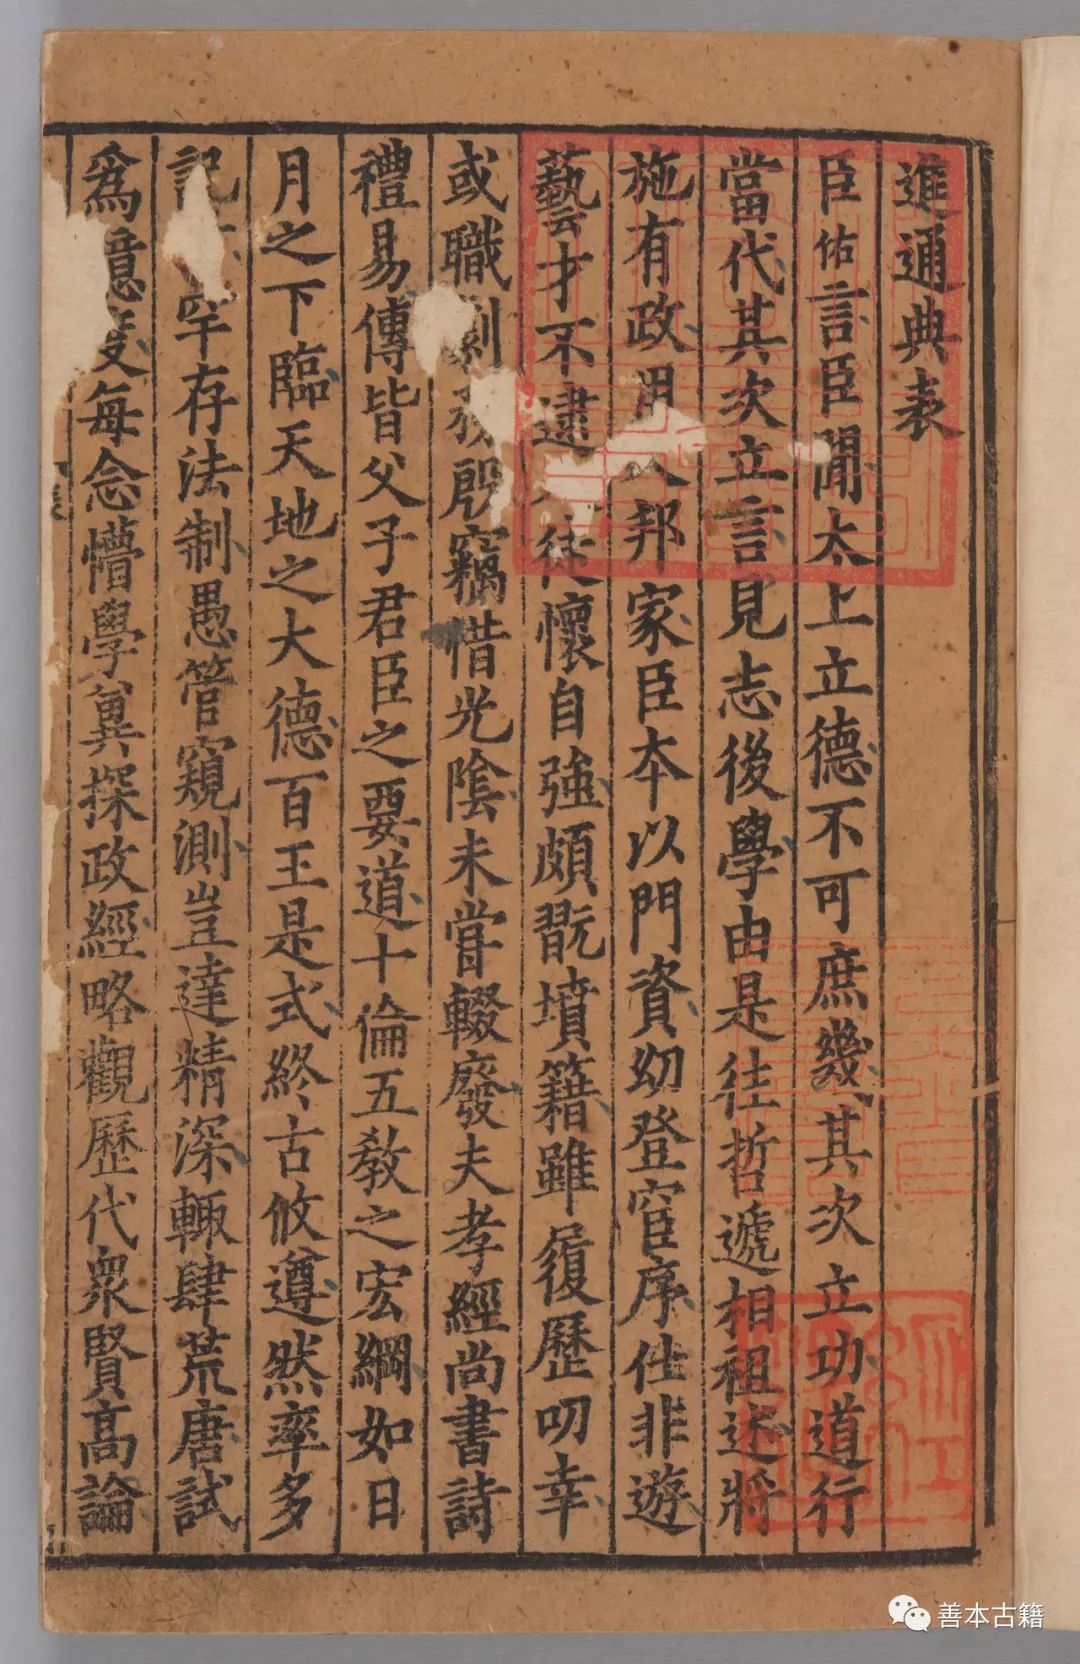 進通典表
臣佑言臣聞太上立德不可庶幾其次立功道行
當代其次立言見志後學由是往哲遞相祖述將
施有政用乂邦家臣本以門資幼登官序仕非遊
藝才不逮徒懷自強頗翫墳籍雖履歷叨幸
或職劇務殷竊惜光陰未嘗輟廢夫孝經尚書詩
禮易傳皆父子君臣之要道十倫五教之宏綱如日
月之下臨天地之大德百王是式終古攸遵然率多
記罕存法制愚管窺測豈達精深輒肆荒唐試
爲億度每念懵學冀探政經略觀歷代衆賢高論
善本古籍